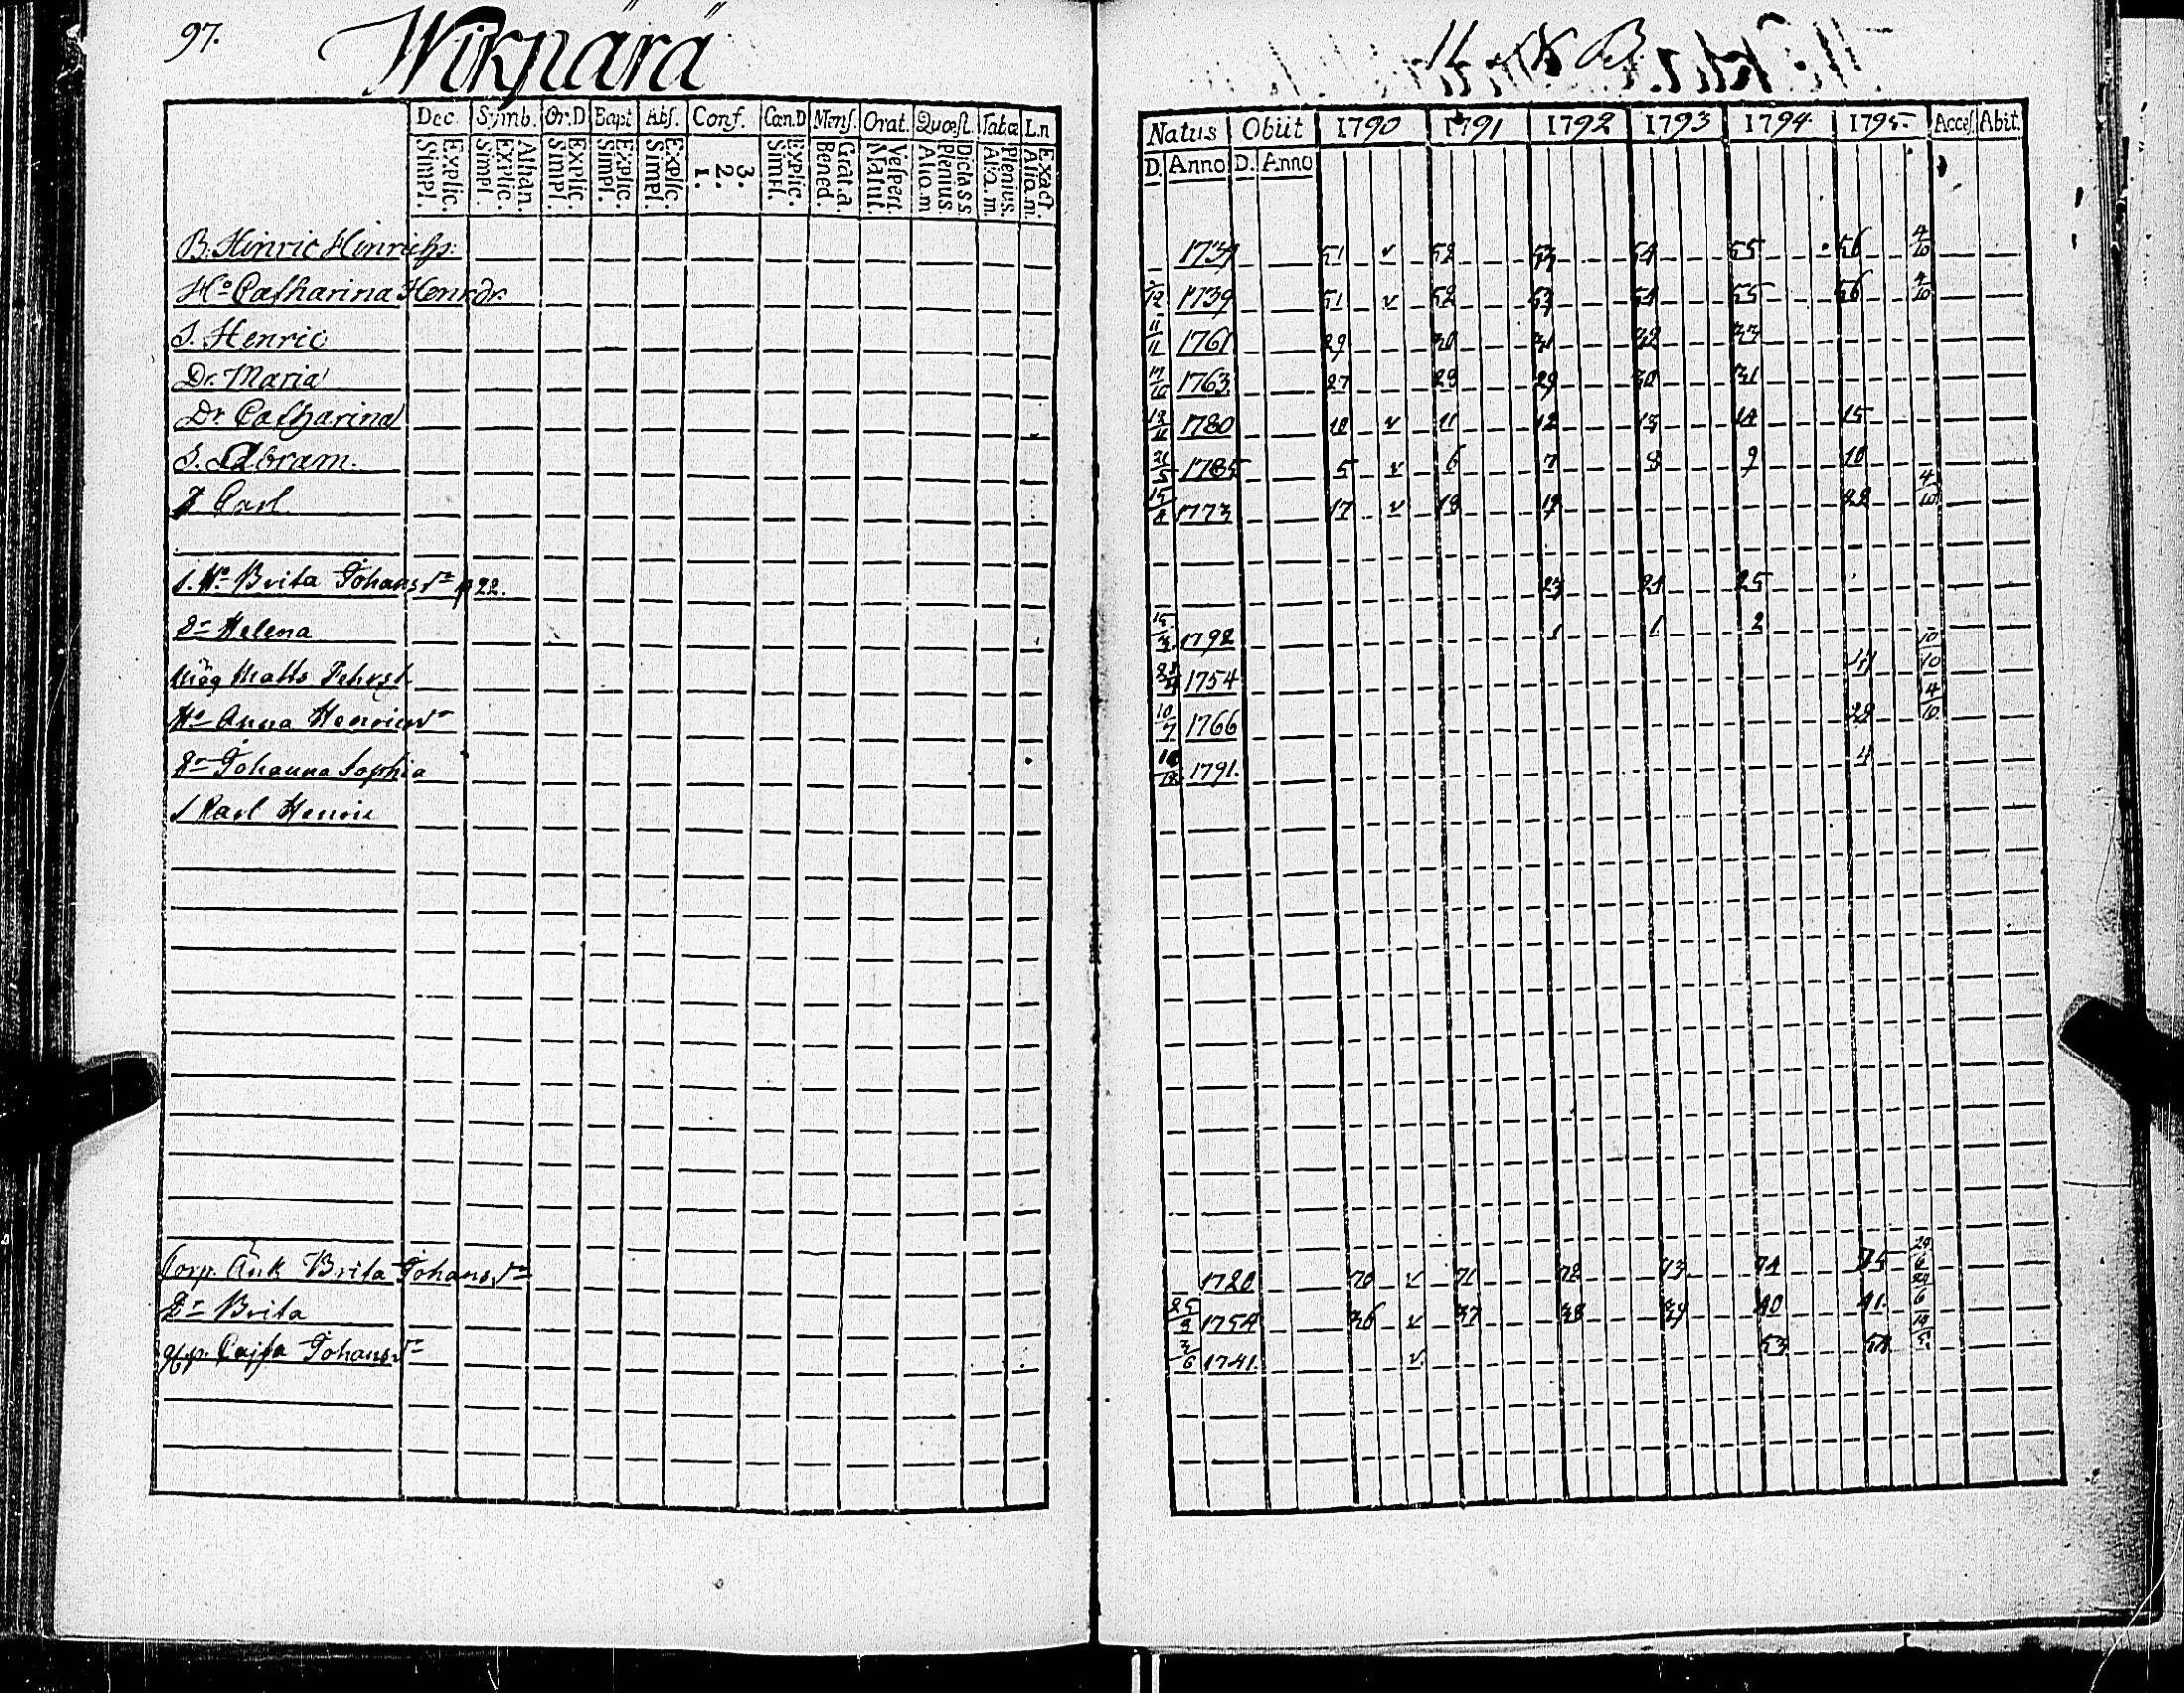 97. Wikpärä
Dec. Symb. Or.D Bapt Abs. Conf. Can.D Mens. Orat. Quæst. Tabæ L.n
Explic. Simpl. Athan. Explic. Simpl. Explic. Simpl. Explic. Simpl. Explic. Simpl. 3. 2. 1. Explic. Simpl. Grat.a. Bened. Vespert. Matut. Dicta S S. Plenius. Alio.m. Plenius. Alio.m. Exact. Alio.m.
Natus Obiit 1790 1791 1792 1793 1794 1795 Acces. Abit.
D. Anno D. Anno
B. Hinric Hinrichs: 1739 51 v 52 53 54 55 56 4/10
Ho Catharina Henr.dr. 1739 51 v 52 53 54 55 56 4/10
S. Henric 11/11 1761 29 30 31 32 33
Dr. Maria 1763 27 28 29 30 31
Dr Catharina 12/11 1780 10 v 11 12 13 14 15
S. Abram. 21/5 1785 5 v 6 7 8 9 10
Carl 1773 17 v 18 19 22 4/10
S. Hu Brita Johansdr p 22. 23 24 25
Dr Helena 1792 1 1 2
Måg Matts 1754 41 10/10
Hu Anna Henricsdr 10/7 1766 29 4/10
Dr Johanna Sophia 1791. 4
S Karl Henric
Corp. Änk Brita Johansdr 1720 70 v 71 72 73 74 75 24/6
Dr Brita 25/9 1754 36 v 37 38 39 40 41 24/6
Cajsa Johansdr 3/6 1741. v. 53 54